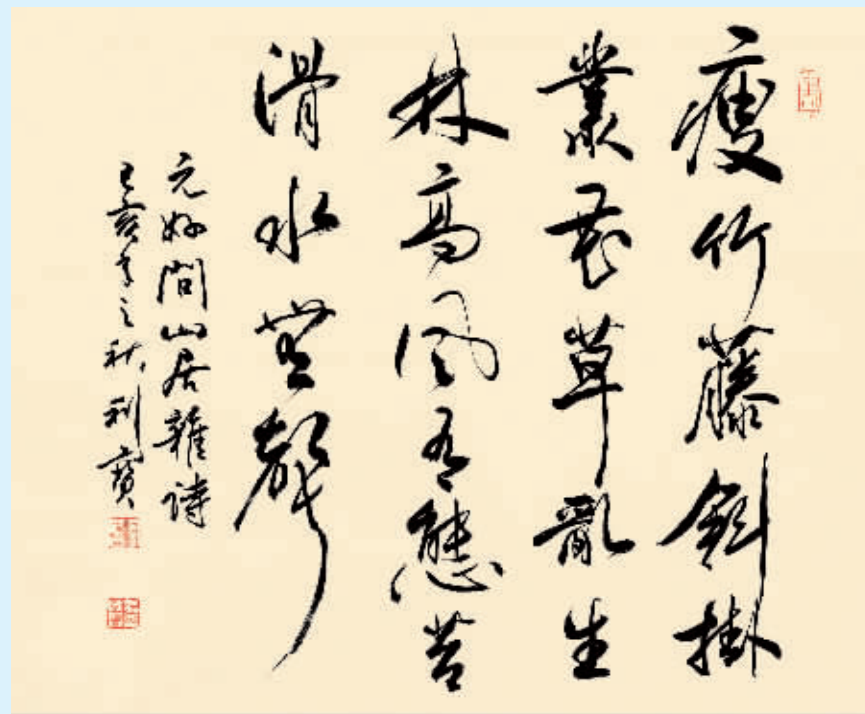 瘦竹藤斜掛
叢花草亂生
林高風有態苔
滑水無聲
元好問山居雜詩
己亥年之秋利寶